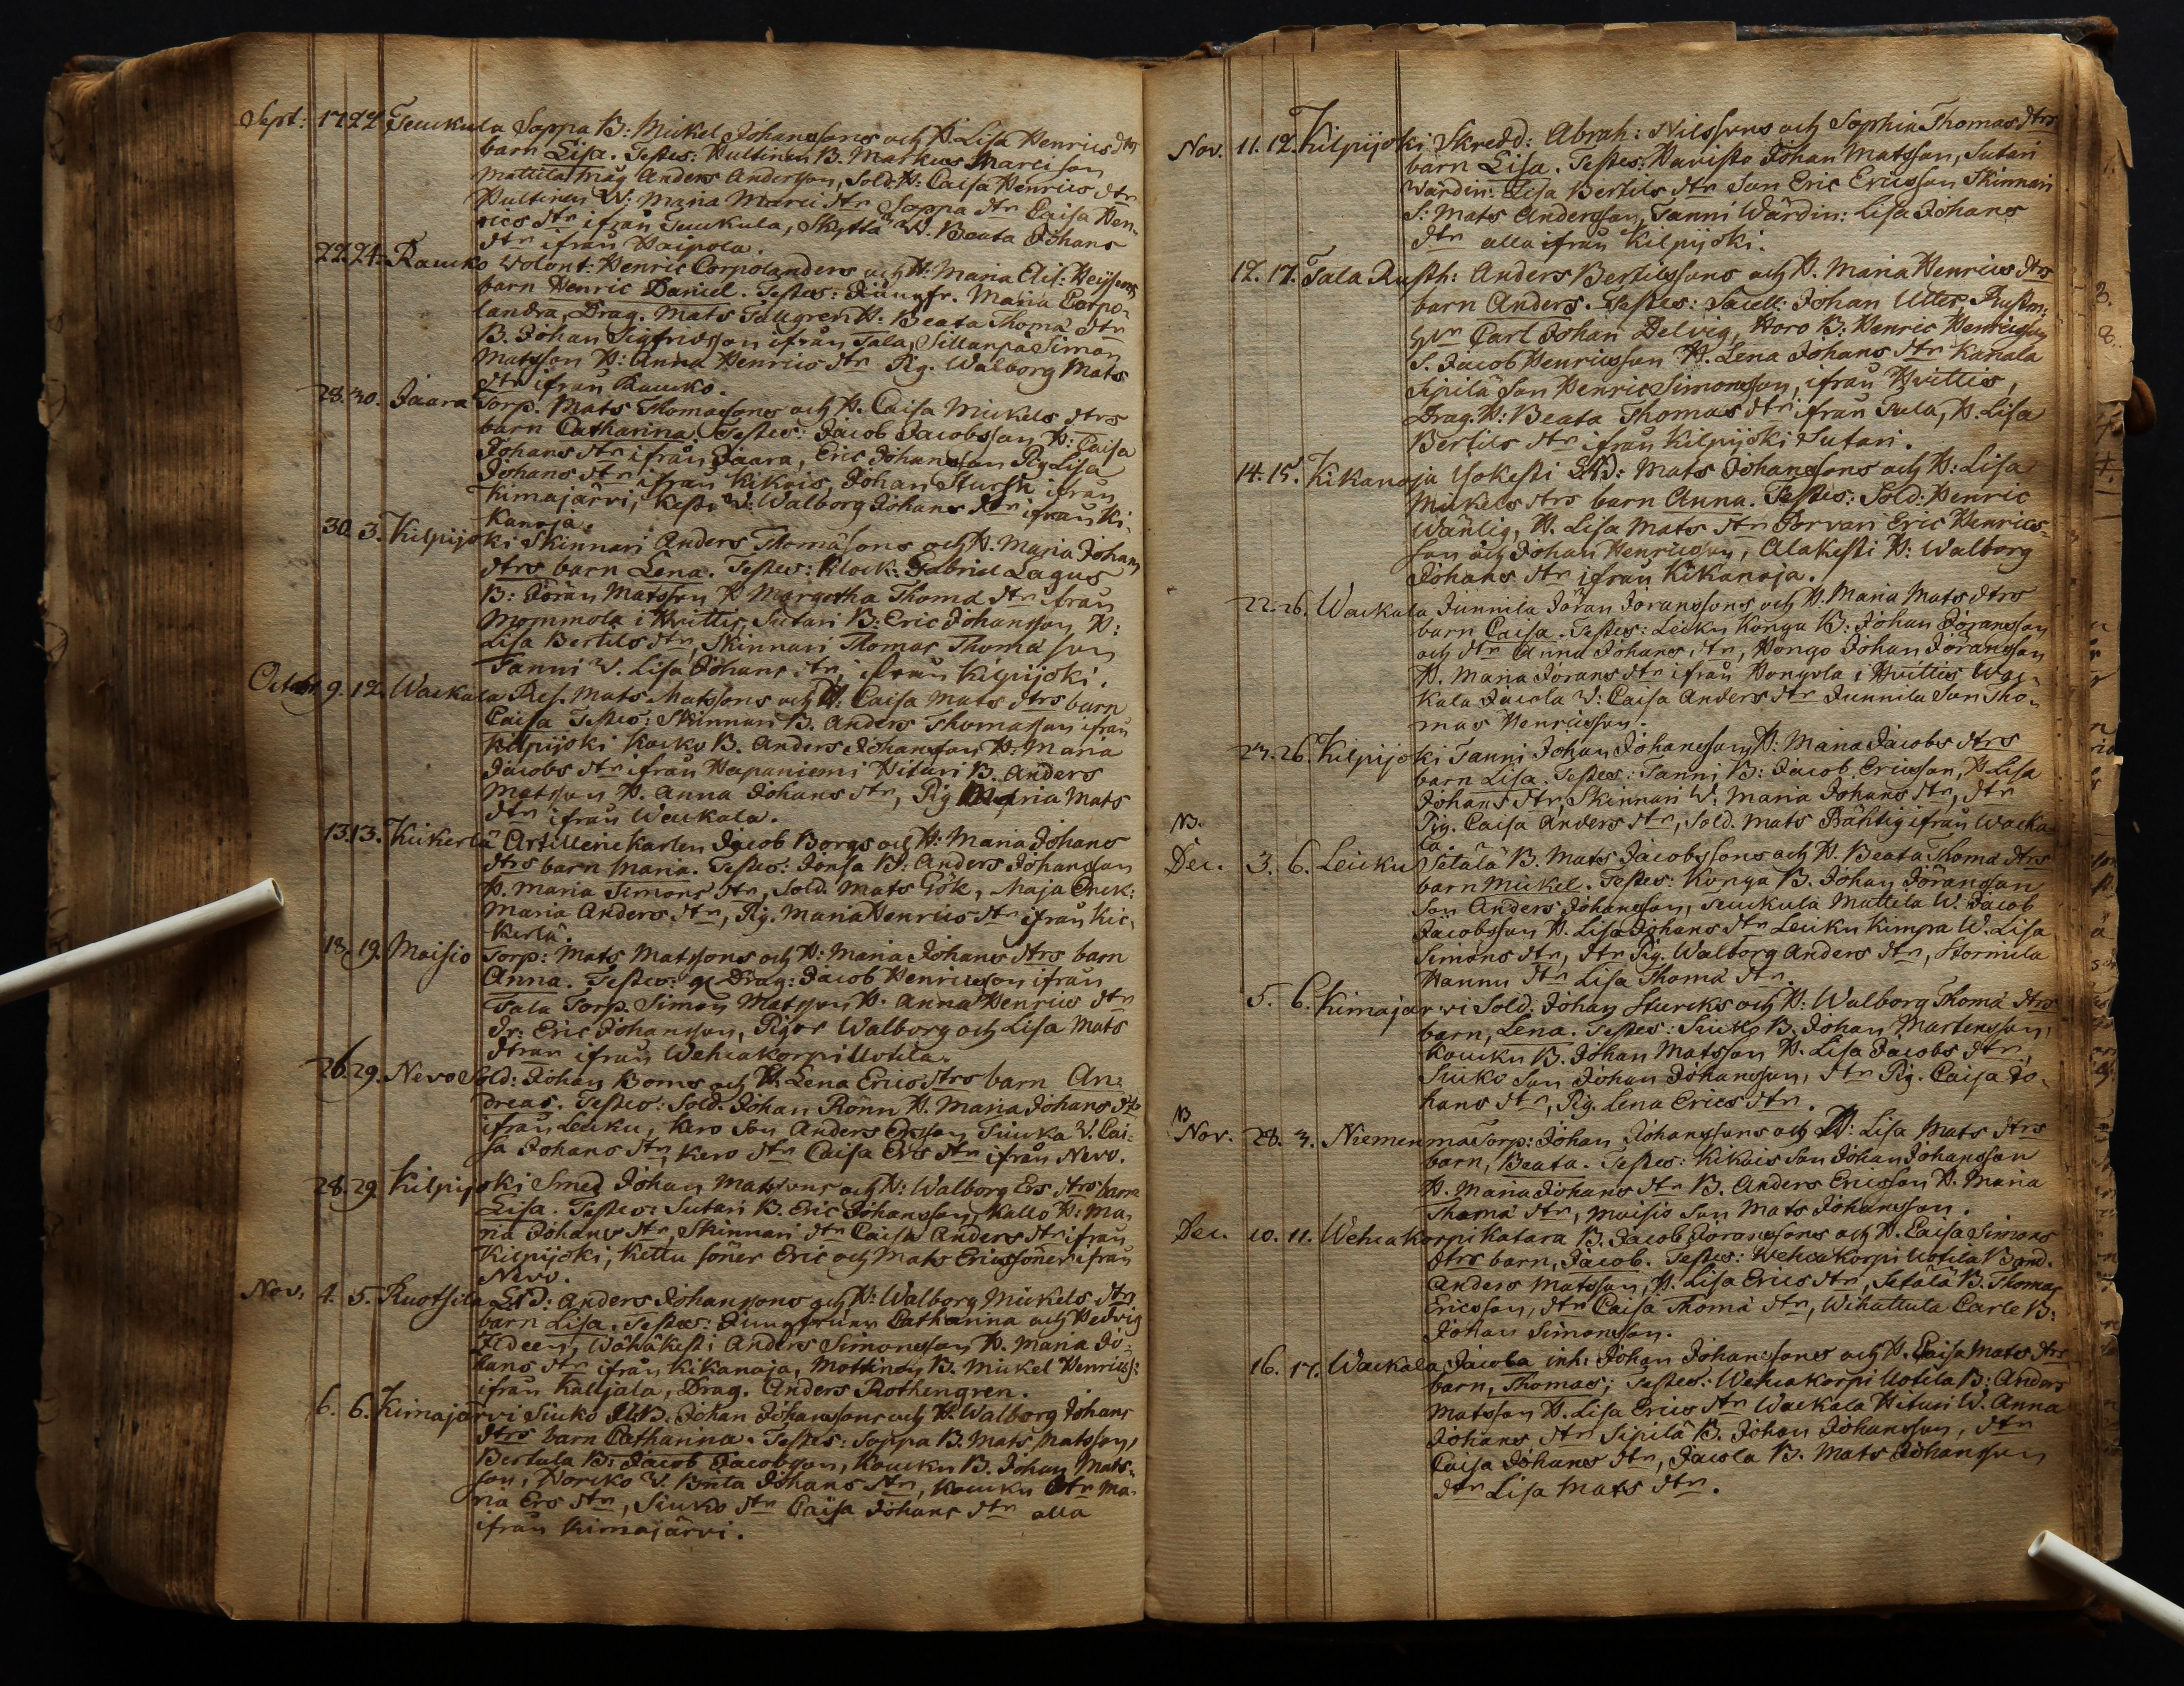 Sept: 17 22 Seuukula Sappa B: Mickel Johanssons och H. Lisa Henrics dtrs
barn Lisa. Testes: Hultinen B. Markus Marci son
Mattila måg Anders Andersson, Sold. H: Caisa Henrics dtr
Hultinen W: Maria Marci dtr Sappa dtr Caisa Hen-
rics dtr ifrån Seuukula, Skyttä W. Beata Johans
dtr ifrån Haipola.
22. 24. Raucko Volont: Henric Corpolanders och H: Maria Elis:
barn Henric Daniel. Testes: Jungfr. Maria Corpo-
landra, Drag. Mats Tallgren H. Beata Thomæ dtr
B. Johan Sigfridsson ifrån Tala, Sillanpä Simon
Matsson H: Anna Henrics dtr Pig. Walborg Mats
dtr ifrån Raucko.
28. 30. Jaara Torp. Mats Thomassons och H. Caisa Mickels dtrs
barn Catharina. Testes: Jacob Jacobsson H: Caisa
Johans dtr ifrån Jaara, Eric Johansson Pig Lisa
Johans dtr ifrån Kikois, Johan Sturck ifrån
Kimajärvi, Kesti W: Walborg Johans dtr ifrån Ki-
kanoja.
30. 3. Kilpijoki Skinnari Anders Thomæsons och H. Maria Johans
dtrs barn Lena. Testes: Klock: Gabriel Lagus
B: Jöran Matsson H Margetha Thomæ dtr ifrån
Mommola i Hvittis, Sutari B: Eric Johansson H:
Lisa Bertils dtr, Skinnari Thomas Thomæ son
Tanni W. Lisa Johans dtr, ifrån Kilpijoki.
Octobr 9. 12. Waekala Res. Mats Matssons och H: Caisa Mats dtrs barn
Caisa Testes: Skinnari B. Anders Thomasson ifrån
Kilpijoki Kacko B. Anders Johansson H. Maria
Jacobs dtr ifrån Hapaniemi Hituri B. Anders
Matsson H. Anna Johans dtr, Pig Maria Mats
dtr ifrån Waekala.
13. 13. Kiikerlä Artillerie karlen Jacob Borgs och H: Maria Johans
dtrs barn Maria. Testes: Jonsa B: Anders Johansson
H. Maria Simons dtr, Sold. Mats Gök, Maja Enck:
Maria Anders dtr, Pig. Maria Henrics dtr ifrån Kic-
kerlä.
18. 19. Maisio Torp: Mats Matssons och H: Maria Johans dtrs barn
Anna. Testes: Drag: Jacob Henricsson ifrån
Tala Torp. Simon Matsson H. Anna Henrics dtr
Dr: Eric Johansson, Pigor Walborg och Lisa Mats
dtran ifrån Wehcakorpi Uotila.
26. 29. Nevo Sold: Johan Boms och H. Lena Erics dtrs barn An-
dreas. Testes: Sold. Johan Rönn H. Maria Johans dtr
ifrån Leuku, Kero Son Anders Ersson Siuka W. Cai-
sa Johans dtr, Kero dtr Caisa Ers dtr ifrån Nevo.
28. 29. Kilpijoki Smed Johan Matssons och H: Walborg Ers dtrs barn
Lisa. Testes: Sutari B. Eric Johansson, Kallo H: Ma-
ria Johans dtr, Skinnari dtr Caisa Anders dtr ifrån
Kilpijoki, Kittu söner Eric och Mats Ericssöner ifrån
Nevo.
Nov: 4. 5. Ruotsila LSD: Anders Johanssons och H: Walborg Mickels dtrs
barn Lisa. Testes: Jungfrurna Catharina och Hedvig
Ildeen, Wähäkesti Anders Simonsson H. Maria Jo-
hans dtr ifrån Kikanoja, Mottinen B. Mickel Henricss:
ifrån Kalljala, Drag. Anders Rothengren.
6. 6. Kimajärvi Siuko B: Johan Johanssons och H. Walborg Johans
dtrs barn Catharina. Testes: Sappa B. Mats Matsson,
Bertula B: Jacob Jacobsson, Kaucku B. Johan Mats-
son, Horcko W. Brita Johans dtr, Kaucku dtr Ma-
ria Ers dtr, Siuko dtr Caisa Johans dtr alla
ifrån Kimajärvi.
Nov. 11. 12. Kilpijoki Skredd: Abrah: Nilssons och Sophia Thomas dtrs
barn Lisa. Testes: Havisto Johan Matsson, Sutari
Wärdin: Lisa Bertils dtr Son Eric Ericsson Skinnari
S: Mats Andersson, Tanni Wärdin: Lisa Johans
dtr alla ifrån Kilpijoki.
12. 17. Tala Rusth: Anders Bertilssons och H. Maria Henrics dtrs
barn Anders. Testes: Sacell: Johan Utter,
Carl Johan Delvig, Horo B: Henric Henricsson
S. Jacob Henricsson H. Lena Johans dtr Kanala
Sipilä Son Henric Simonsson, ifrån Hvittis,
Drag. H: Beata Thomas dtr ifrån Tala, H. Lisa
Bertils dtr ifrån Kilpijoki Sutari.
14. 15. Kikanoja Yokesti LSD: Mats Johanssons och H: Lisa
Mickels dtrs barn Anna. Testes: Sold: Henric
Wänlig, H. Lisa Mats dtr Porvari Eric Henrics-
son och Johan Henricsson, Alakesti H: Walborg
Johans dtr ifrån Kikanoja.
22. 26. Waekala Junnila Jöran Joranssons och H. Maria Mats dtrs
barn Caisa. Testes: Leuku Konga B: Johan Joransson
och dtr Anna Johans dtr, Hongo Johan Joransson
H. Maria Jorans dtr ifrån Hongola i Hvittis Wae-
kala Jacola W: Caisa Anders dtr Junnila Son Tho-
mas Henricsson.
24. 26. Kilpijoki Tanni Johan Johanssons H: Maria Jacobs dtrs
barn Lisa. Testes: Tanni B: Jacob Ericsson, H Lisa
Johans dtr, Skinnari W: Maria Johans dtr, dtr
Pig. Caisa Anders dtr, Sold. Mats Präktig ifrån Waeka-
la.
NB.
Dec. 3. 6. Leuku Setälä B. Mats Jacobssons och H. Beata Thomæ dtrs
barn Mickel. Testes: Konga B. Johan Jöransson
Son Anders Johansson, Seuukula Mattila W. Jacob
Jacobsson H. Lisa Johans dtr Leuku Kimpa W. Lisa
Simons dtr, dtr Pig. Walborg Anders dtr, Hornila
Hannu dtr Lisa Thomæ dtr.
5. 6. Kimajärvi Sold: Johan Sturcks och H: Walborg Thomæ dtrs
barn, Lena. Testes: Siuko B. Johan Mårtensson,
Kaucku B. Johan Matsson H. Lisa Jacobs dtr,
Siuko Son Johan Johansson, dtr Pig. Caisa Jo-
hans dtr, Pig. Lena Erics dtr.
NB
Nov. 28. 4. Niemenmaa Torp: Johan Johanssons och H: Lisa Mats dtrs
barn, Beata. Testes: Kikois Son Johan Johansson
H. Maria Johans dtr B. Anders Ericsson H. Maria
Thomæ dtr, Maisio Son Mats Johansson.
Dec. 10. 11. Wehcakorpi Katara B. Jacob Joranssons och H. Caisa Simons
dtrs barn, Jacob. Testes: Wehcakorpi Uotila Bond.
Anders Matsson, H. Lisa Erics dtr, Setälä B. Thomas
Ericsson, dtr Caisa Thomæ dtr, Wihattula Carle B:
Johan Simonsson.
16. 17. Waekala Jacola inh: Johan Johanssons och H. Caisa Mats dtrs
barn, Thomas; Testes: Wehcakorpi Uotila B: Anders
Matsson H. Lisa Erics dtr Waekala Hituri W. Anna
Johans dtr Sipilä B. Johan Johansson, dtr
Caisa Johans dtr, Jacola B. Mats Johansson
dtr Lisa Mats dtr.